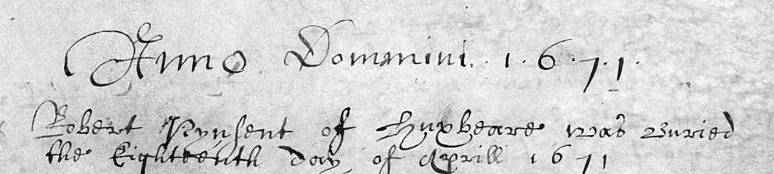 Anno Dommini 1.6.7.1.
Robert Pynsent of Huxbeare was Buried
the Eighteenth day of Aprill 1671